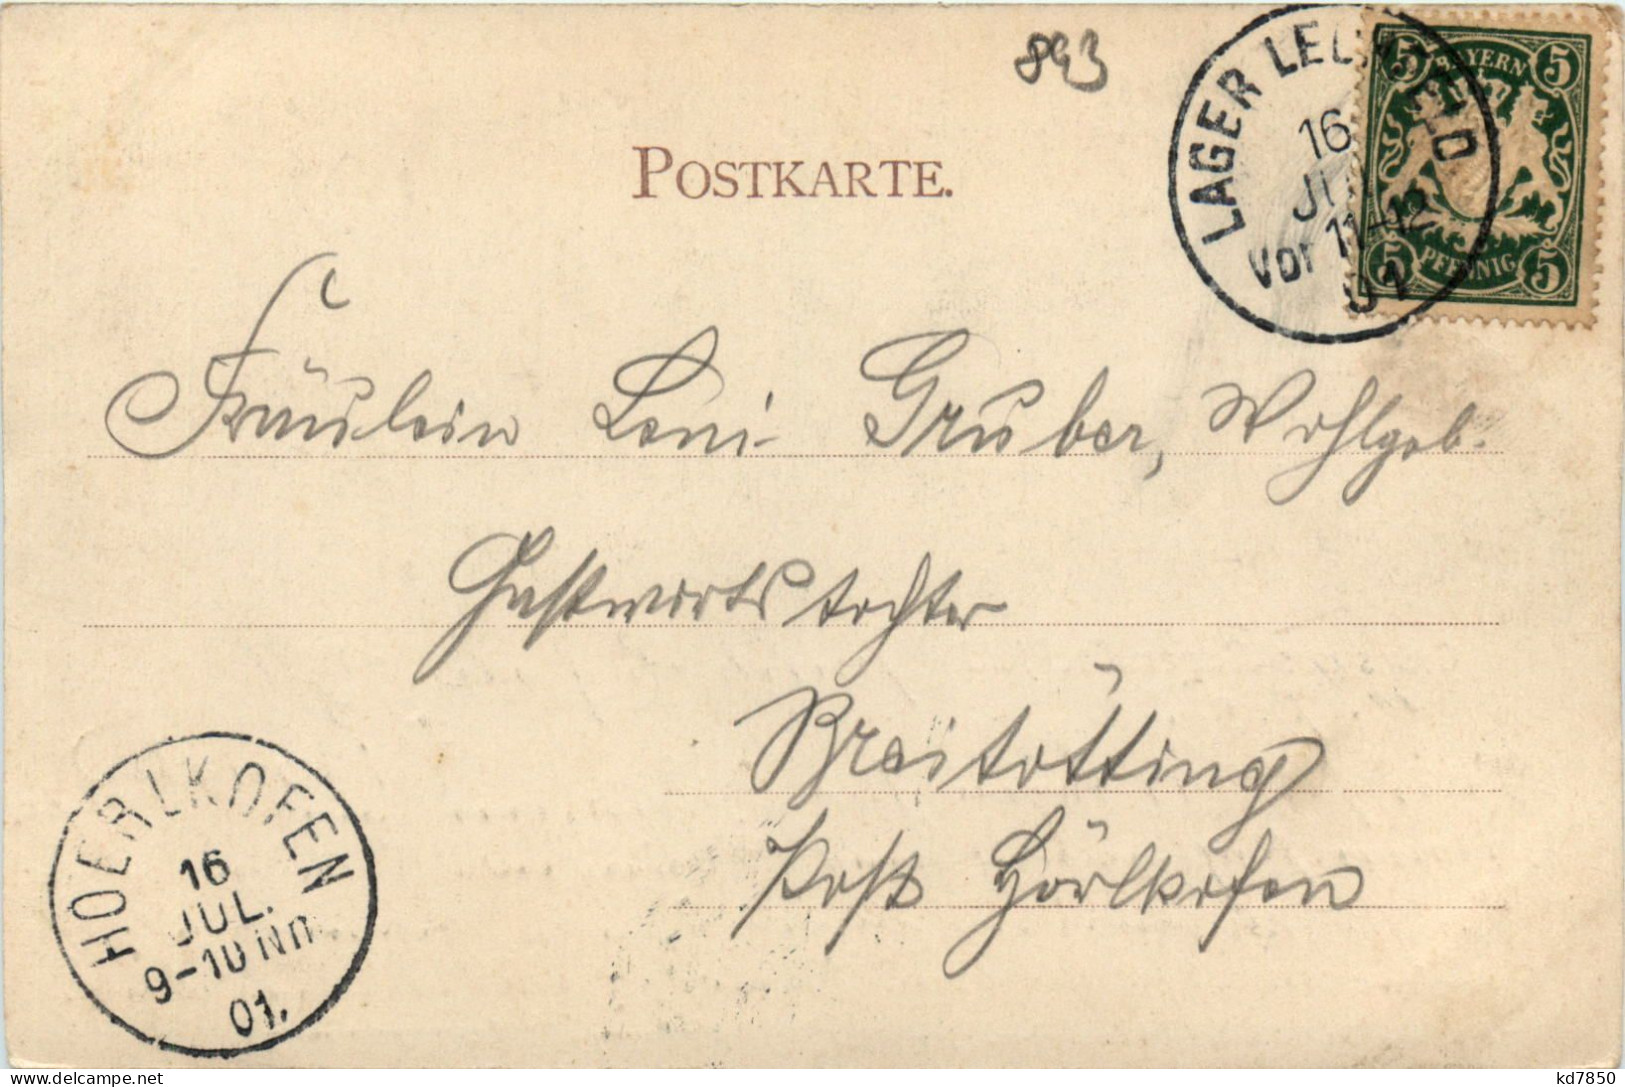 893
POSTKARTE.
LAGER LECHFELD.
16
JUL
Vor 11-12
01
5 BAYERN 5
5 PFENNIG 5
Fräulein Leni Gruber, Wohlgeb.
Gastwirtstochter
Breitötting
Post Hörlkofen
HOERLKOFEN
16
JUL.
9-10 Nm
01.
kd7850